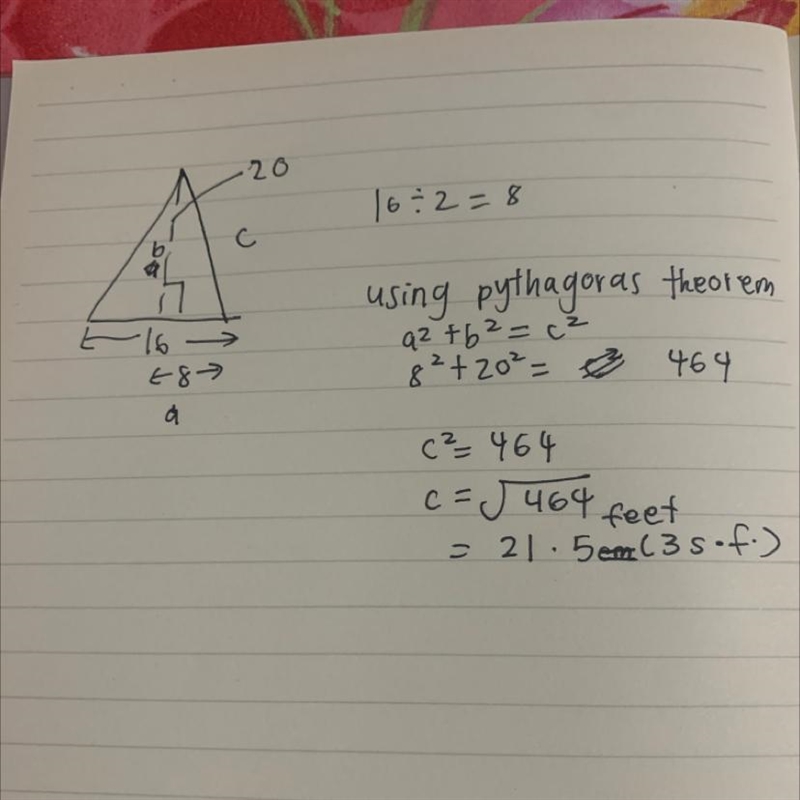 20
b
c
16
8
a
16 ÷ 2 = 8
using pythagoras theorem
a² + b² = c²
8² + 20² = 464
c² = 464
c = √464
feet
= 21.5 (3 s.f.)